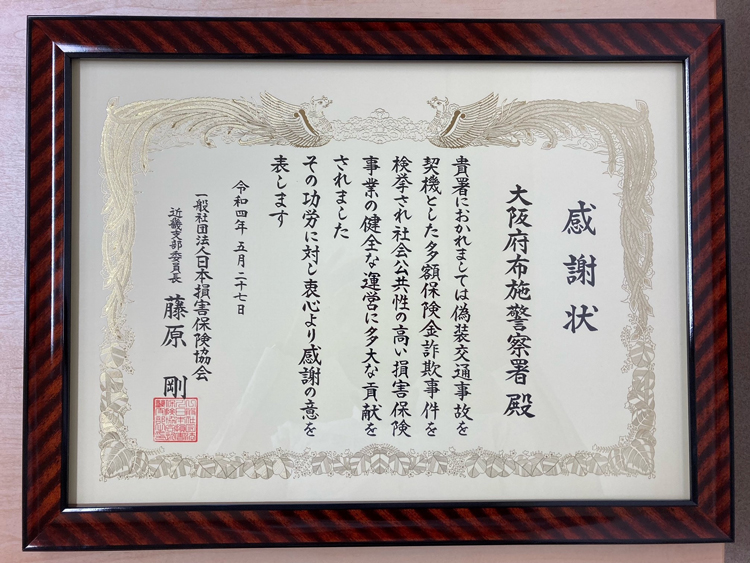 感謝状
大阪府布施警察署 殿
貴署におかれましては偽装交通事故を
契機とした多額保険金詐欺事件を
検挙され社会公共性の高い損害保険
事業の健全な運営に多大な貢献を
されました
その功労に対し衷心より感謝の意を
表します
令和四年 五月 二十七日
一般社団法人日本損害保険協会
近畿支部委員長 藤原 剛